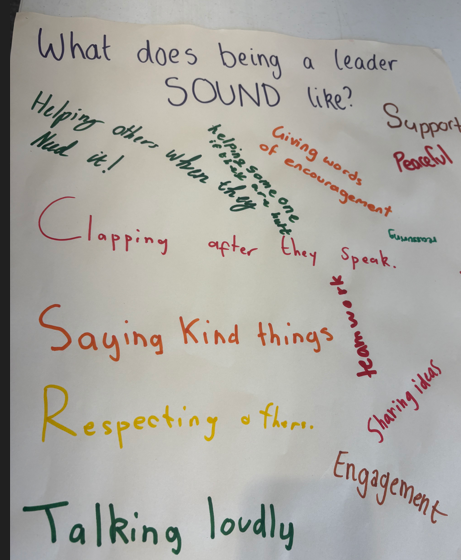 What does being a leader
SOUND like?
Helping others when they
Need it!
helping some one
that are hurt
Giving words
of encouragement
Support
Peaceful
Clapping after they speak.
teamwork
Saying Kind things
Sharing ideas
Respecting others.
Engagement
Talking loudly